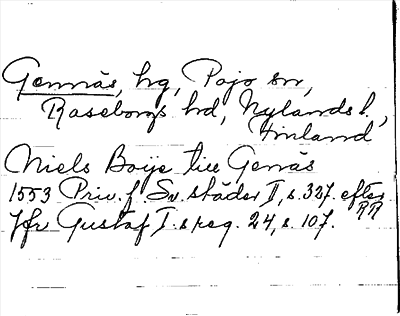 Gennäs, hg, Pojo sn,
Raseborgs hd, Nylands l.,
Finland
Niels Boije till Genäs
1553 Priv. f. Sv. städer II, s. 327. efter RR
Jfr Gustaf I:s reg. 24, s. 107.